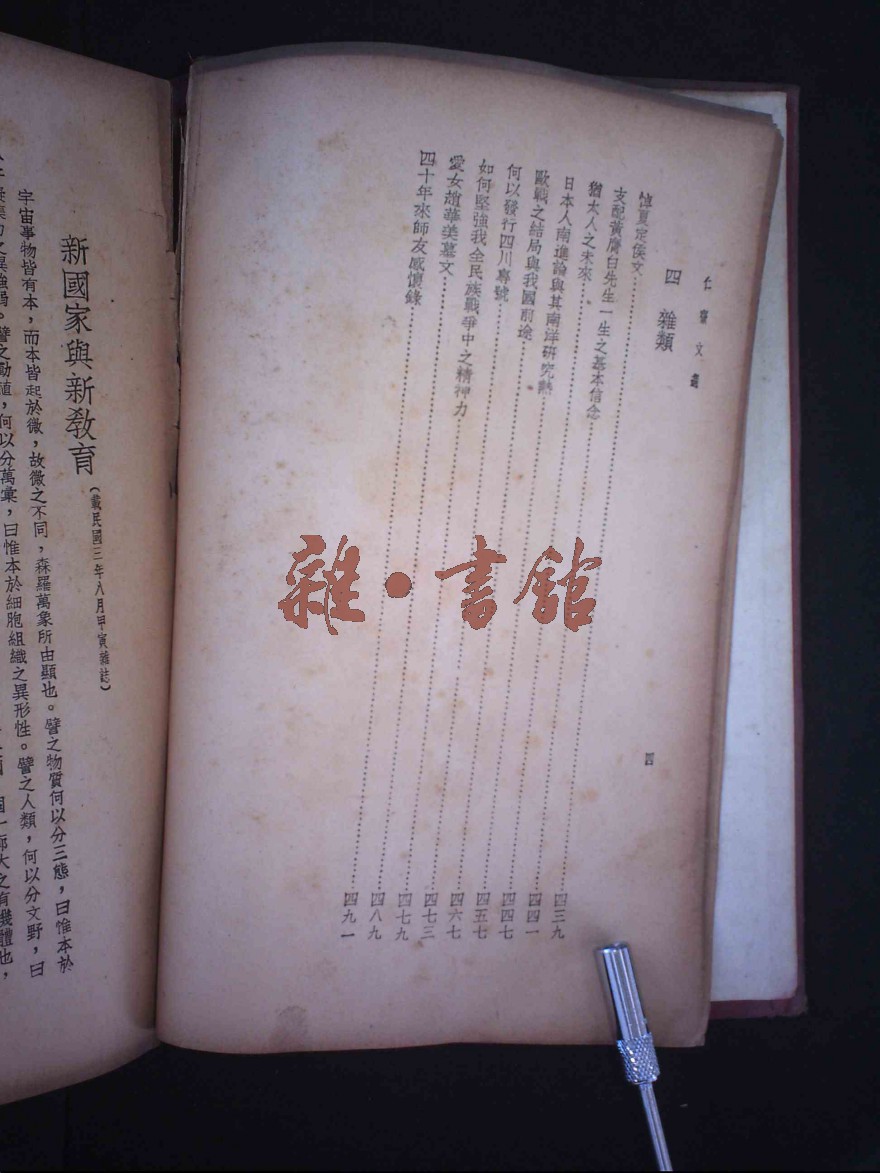 仁齋文選
四　雜類
悼夏定侯文……四三九
支配黃膺白先生一生之基本信念……四四一
猶太人之未來……四四七
日本人南進論與其南洋研究熱……四五七
歐戰之結局與我國前途……四六七
何以發行四川專號……四七三
如何堅強我全民族戰爭中之精神力……四七九
愛女趙華美墓文……四八九
四十年來師友感懷錄……四九一
四
雜·書館
新國家與新教育（載民國三年八月甲寅雜誌）
宇宙事物皆有本，而本皆起於微，故微之不同，森羅萬象所由顯也。譬之物質何以分三態，曰惟本於
凝集力之異強弱。譬之動植，何以分萬彙，曰惟本於細胞組織之異形性。譬之人類，何以分文野，曰
大之有機體也，